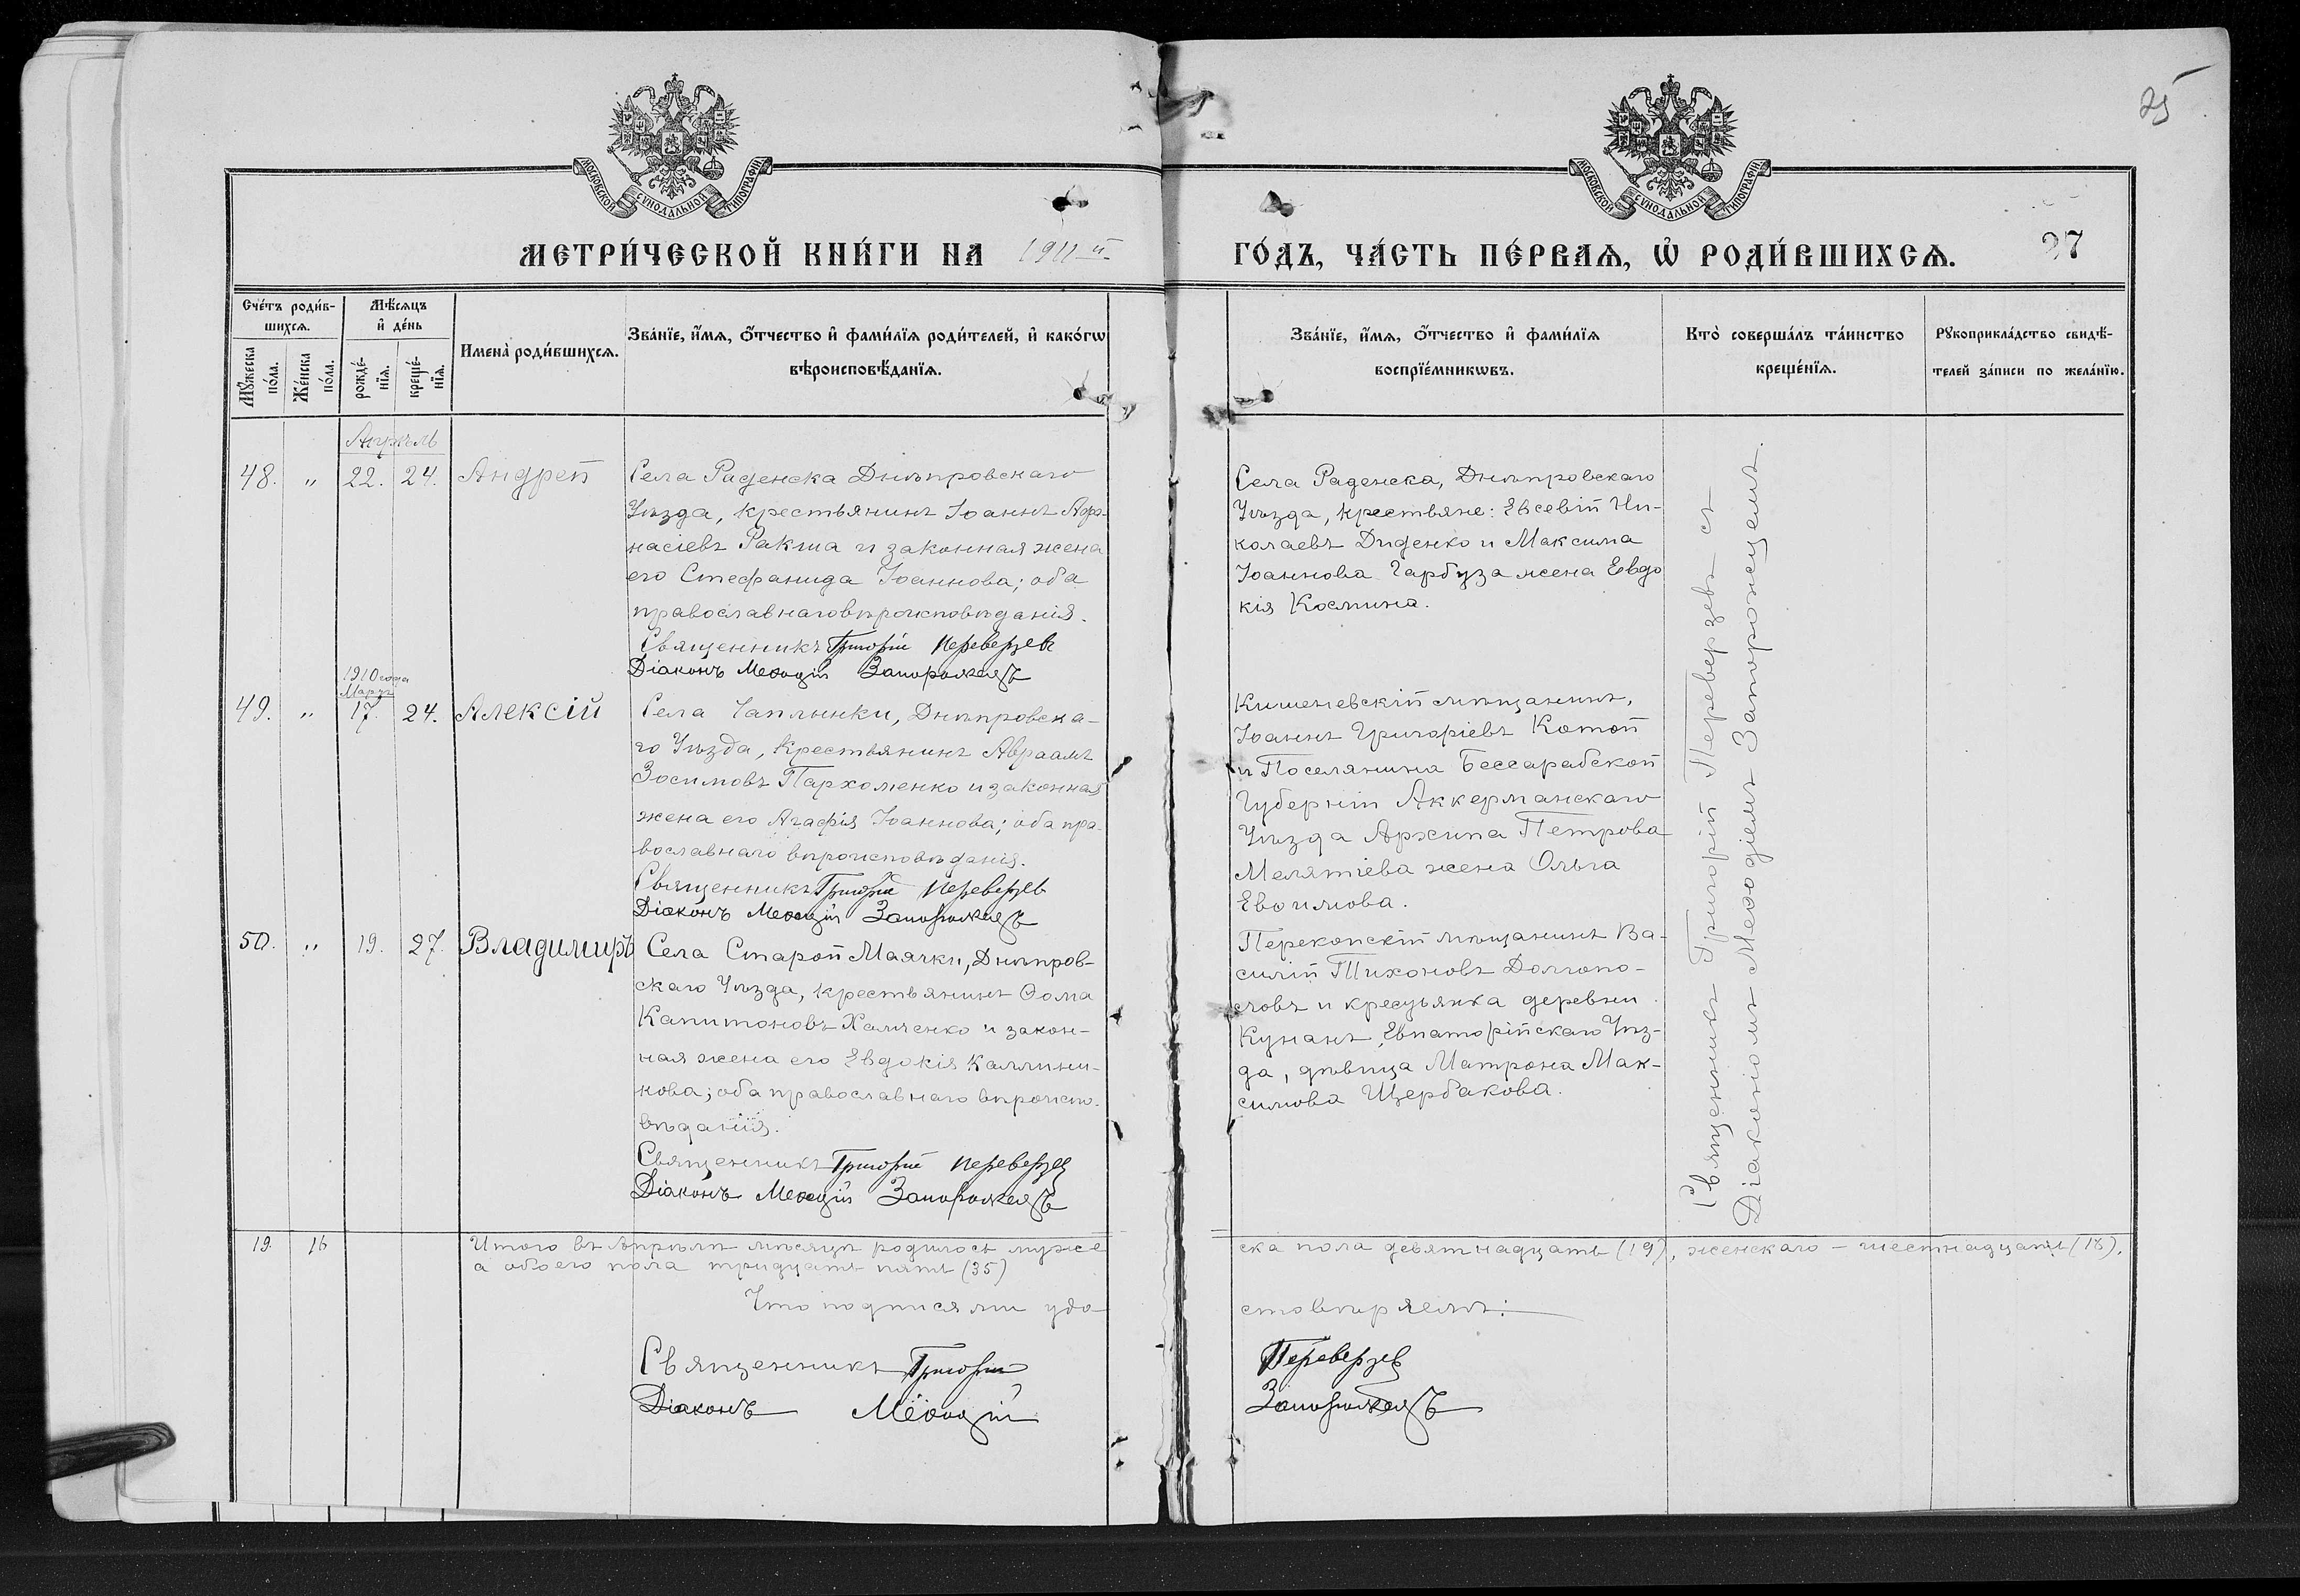 25
МОСКОВСКОЙ СѴНОДАЛЬНОЙ ТИПОГРАФІИ
МОСКОВСКОЙ СѴНОДАЛЬНОЙ ТИПОГРАФІИ
МЕТРИ́ЧЕСКОЙ КНИ́ГИ НА 1911 й
ГО́ДЪ, ЧА́СТЬ ПЕ́РВАѦ, Ѡ҆ РОДИ́ВШИХСѦ. 27
Сче́тъ роди́в-
шихсѧ.
Мꙋ́жеска по́ла.
Же́нска по́ла.
Мѣ́сѧцъ
и҆ де́нь
рожде́-
нїѧ.
креще́-
нїѧ.
Имена̀ роди́вшихсѧ.
Зва́нїе, и҆́мѧ, ѻ҆́тчество и҆ фами́лїѧ роди́телей, и҆ како́гѡ
вѣроисповѣ́данїѧ.
Зва́нїе, и҆́мѧ, ѻ҆́тчество и҆ фами́лїѧ
воспрїе́мникѡвъ.
Кто̀ соверша́лъ та́инство
креще́нїѧ.
Рꙋкоприкла́дство свидѣ́-
телей за́писи по жела́нїю.
Апрѣль
48. " 22. 24. Андрей
Села Раденска Днѣпровскаго
Уѣзда, крестьянинъ Іоаннъ Афа-
насіевъ Ракша и законная жена
его Стефанида Іоаннова; оба
православнаго вѣроисповѣданія.
Священникъ Григорій Переверзев
Діаконъ Меѳодій Запорожецъ
Села Раденска, Днѣпровскаго
Уѣзда, крестьяне: Евсевій Ни-
колаевъ Диденко и Максима
Іоаннова Гарбуза жена Евдо
кія Космина.
1910 года
Мартъ
49. " 17. 24. Алексій
Села Чаплынки, Днѣпровска-
го Уѣзда, крестьянинъ Авраамъ
Зосимовъ Пархоменко и законная
жена его Агафія Іоаннова; оба пра-
вославнаго вѣроисповѣданія.
Священникъ Григорій Переверзев
Діаконъ Меѳодій Запорожецъ
Кишеневскій мѣщанинъ,
Іоаннъ Григоріевъ Котой
и Поселянина Бессарабской
Губерніи Аккерманскаго
Уѣзда Архипа Петрова
Мелятіева жена Ольга
Евѳимова.
50. " 19. 27. Владимиръ
Села Старой Маячки, Днѣпров-
скаго Уѣзда, крестьянинъ Ѳома
Капитоновъ Халченко и закон-
ная жена его Евдокія Каллини-
кова; оба православнаго вѣроиспо-
вѣданія.
Священникъ Григорій Переверзев
Діаконъ Меѳодій Запорожецъ
Перекопскій мѣщанинъ Ва-
силій Тихоновъ Долгопо-
ловъ и крестьянка деревни
Кунанъ, Евпаторійскаго Уѣз-
да, дѣвица Матрона Мак-
симова Щербакова.
Священникъ Григорій Переверзевъ съ
Діакономъ Меѳодіемъ Запорожцемъ.
19. 16 Итого въ Апрѣлѣ мѣсяцѣ родилось муже
ска пола девятнадцать (19), женскаго – шестнадцать (16),
а обоего пола тридцать пять (35)
Что подписями удо
стовѣряемъ:
Священникъ Григорій Переверзев
Діаконъ Меѳодій Запорожецъ